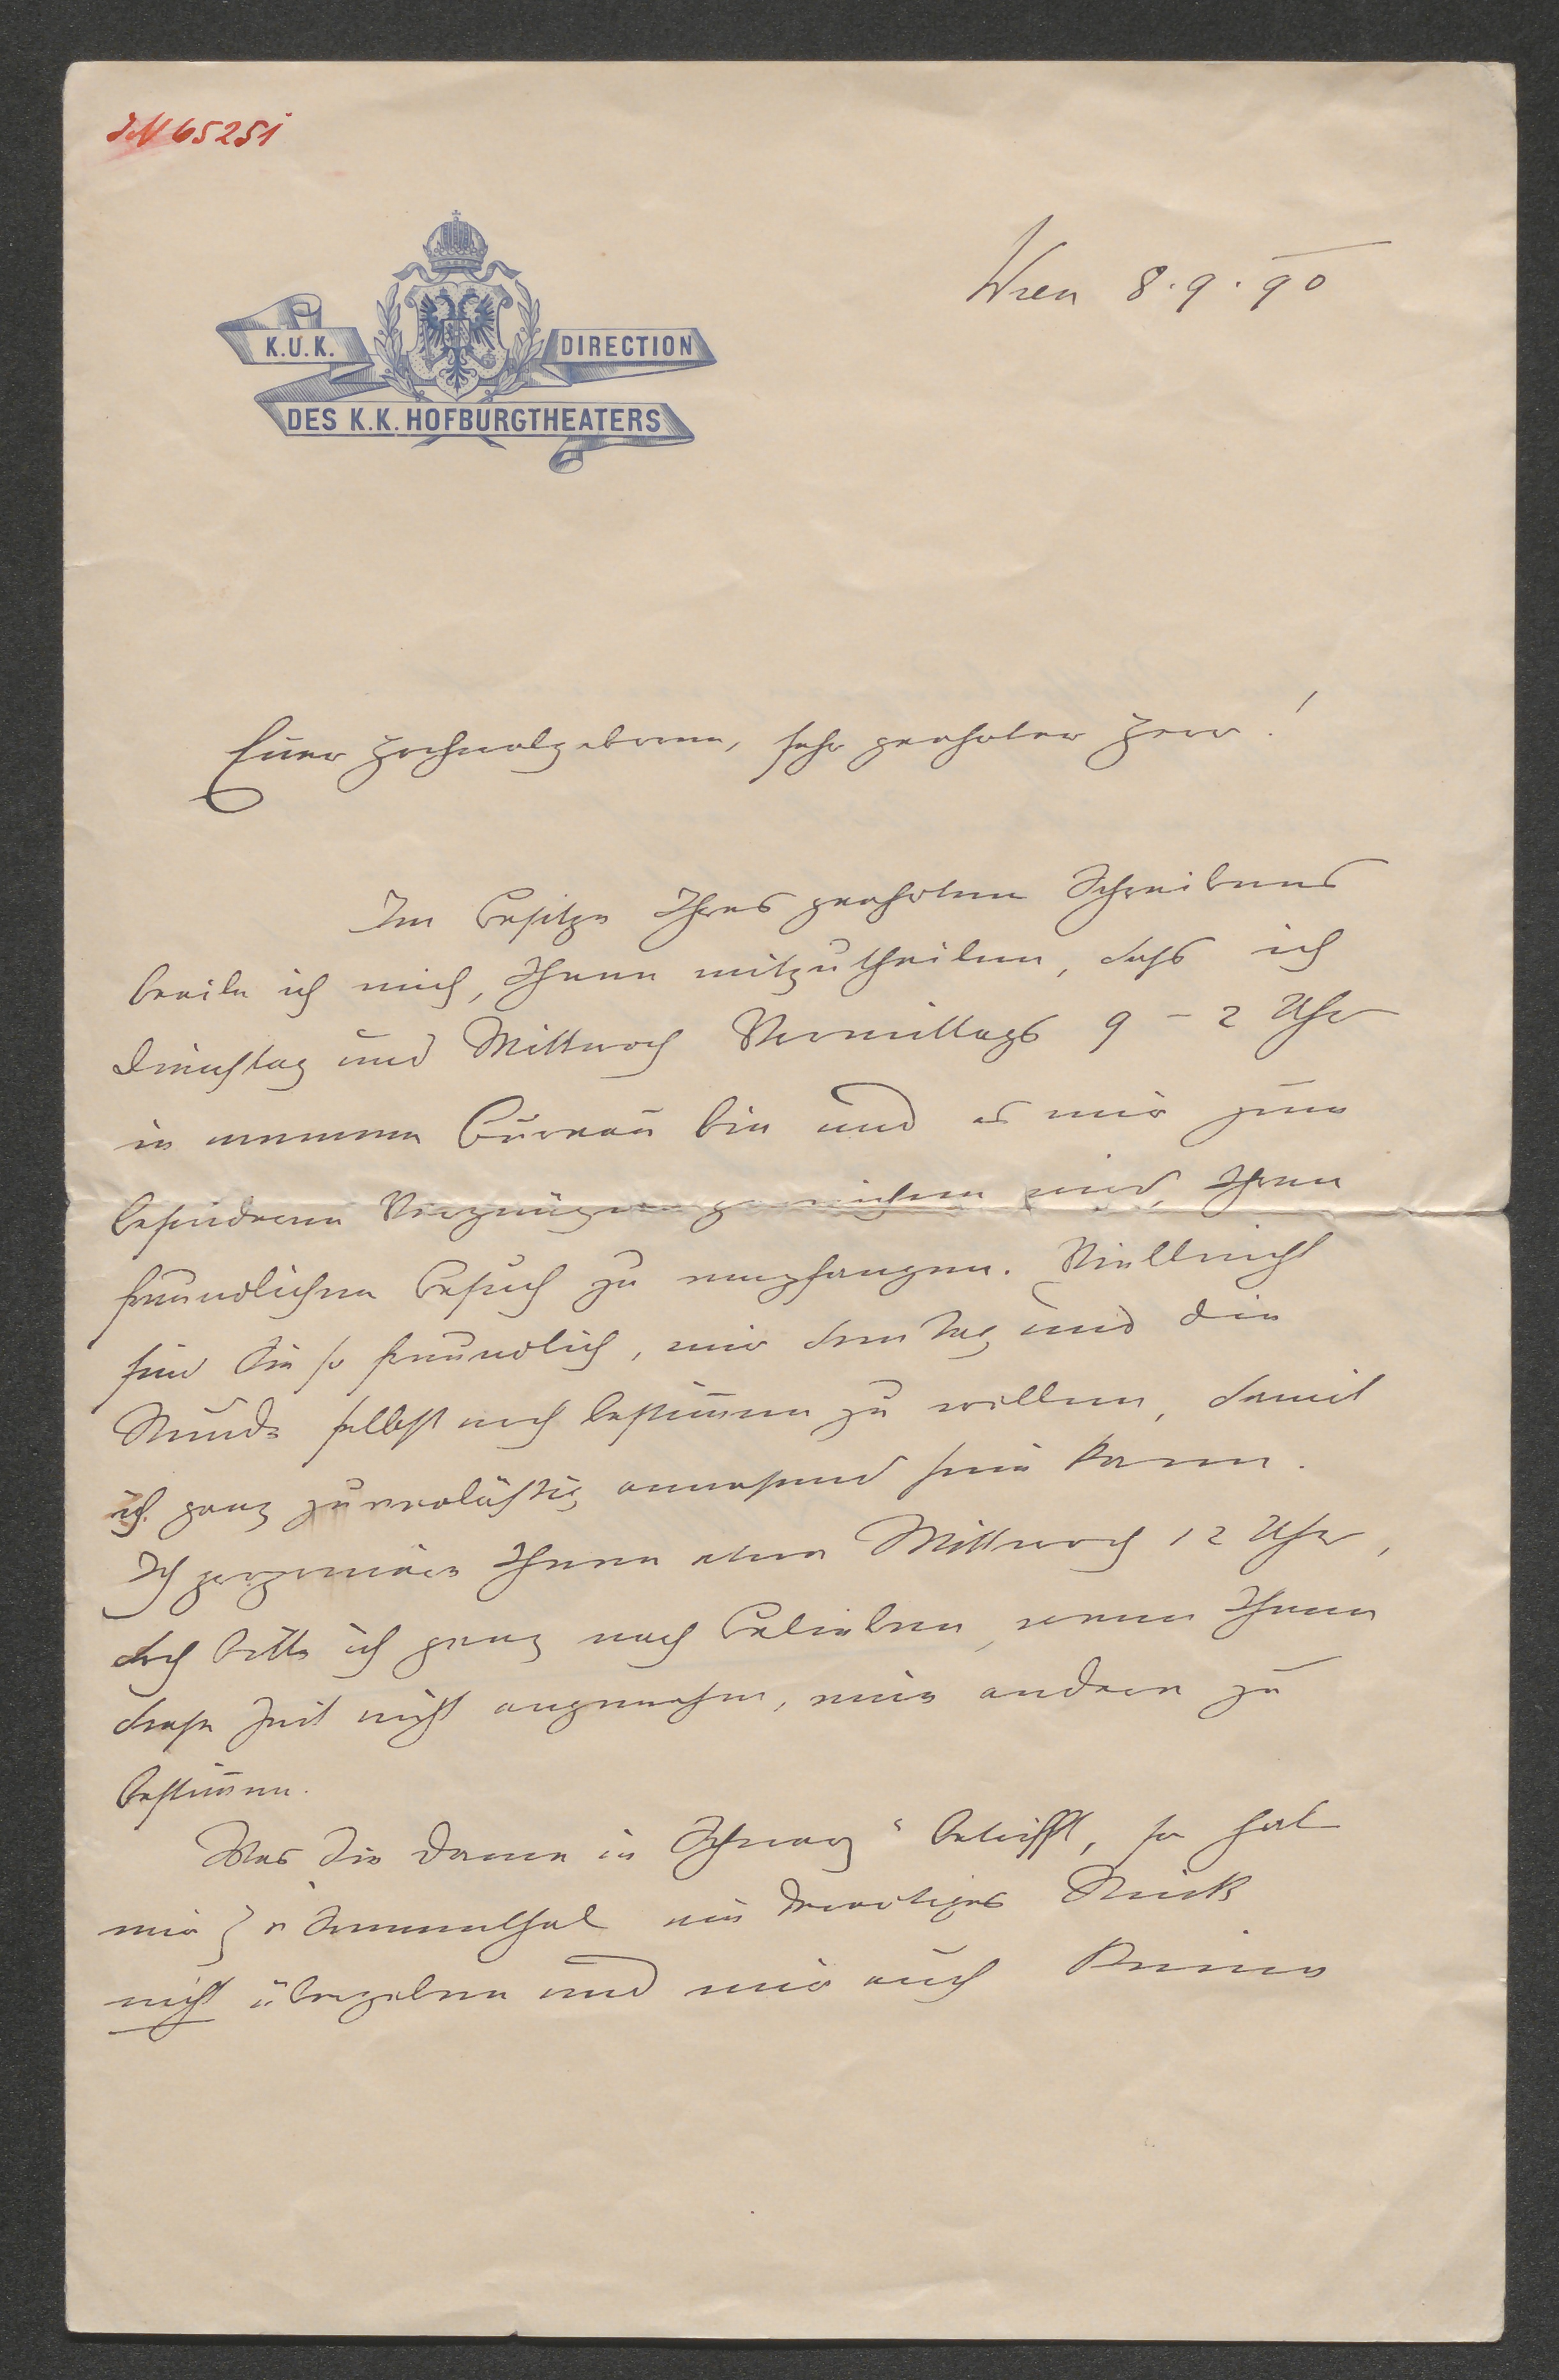 IN 65251
Wien 8.9.90
K.U.K. DIRECTION
DES K.K. HOFBURGTHEATERS
Euer Hochwolgeboren, sehr geehrter Herr!
Im Besitze Ihres geehrten Schreibens
beeile ich mich, Ihnen mitzutheilen, dass ich
Dienstag und Mittwoch Vormittags 9 – 2 Uhr
in meinem Bureau bin und es mir zum
besonderen Vergnügen gereichen wird, Ihren
freundlichen Besuch zu empfangen. Vielleicht
sind Sie so freundlich, mir den Tag und die
Stunde selbst noch bestimmen zu wollen, damit
ich ganz zuverlässig anwesend sein kann.
Ich proponiere Ihnen etwa Mittwoch 12 Uhr,
doch bitte ich ganz nach Belieben, wenn Ihnen
diese Zeit nicht angenehm, eine andere zu
bestimmen.
Was die Dame in Schwarz" betrifft, so hat
mir H Sonnenthal ein derartiges Stück
nicht übergeben und mir auch keine